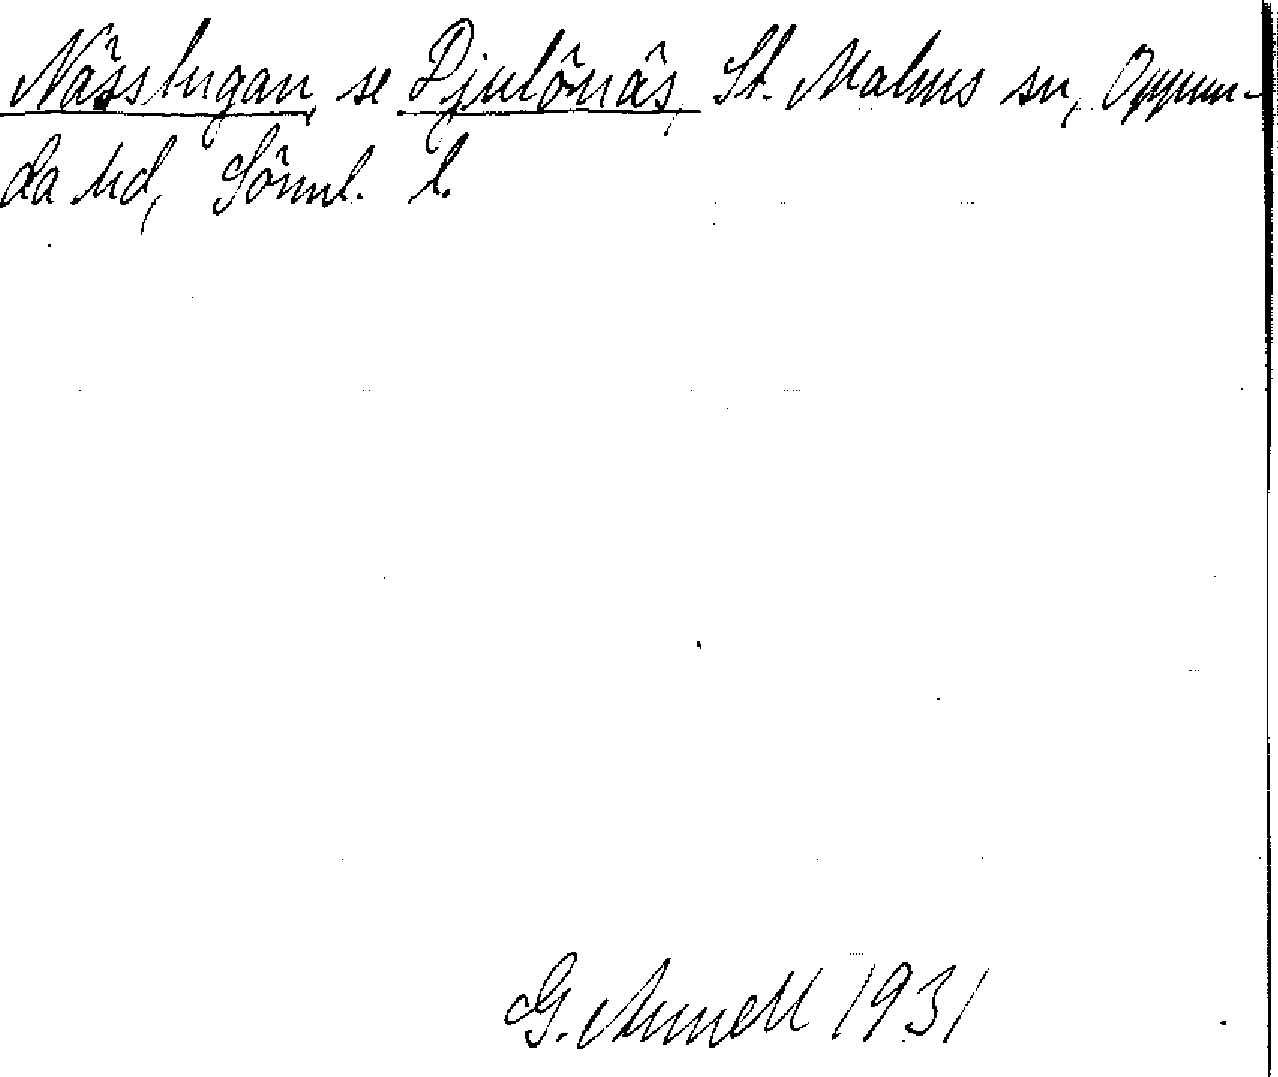 Nässtugan, se Djulönäs, St. Malms sn, Oppun-
da hd, Sörml. l.
G. Arnell 1931